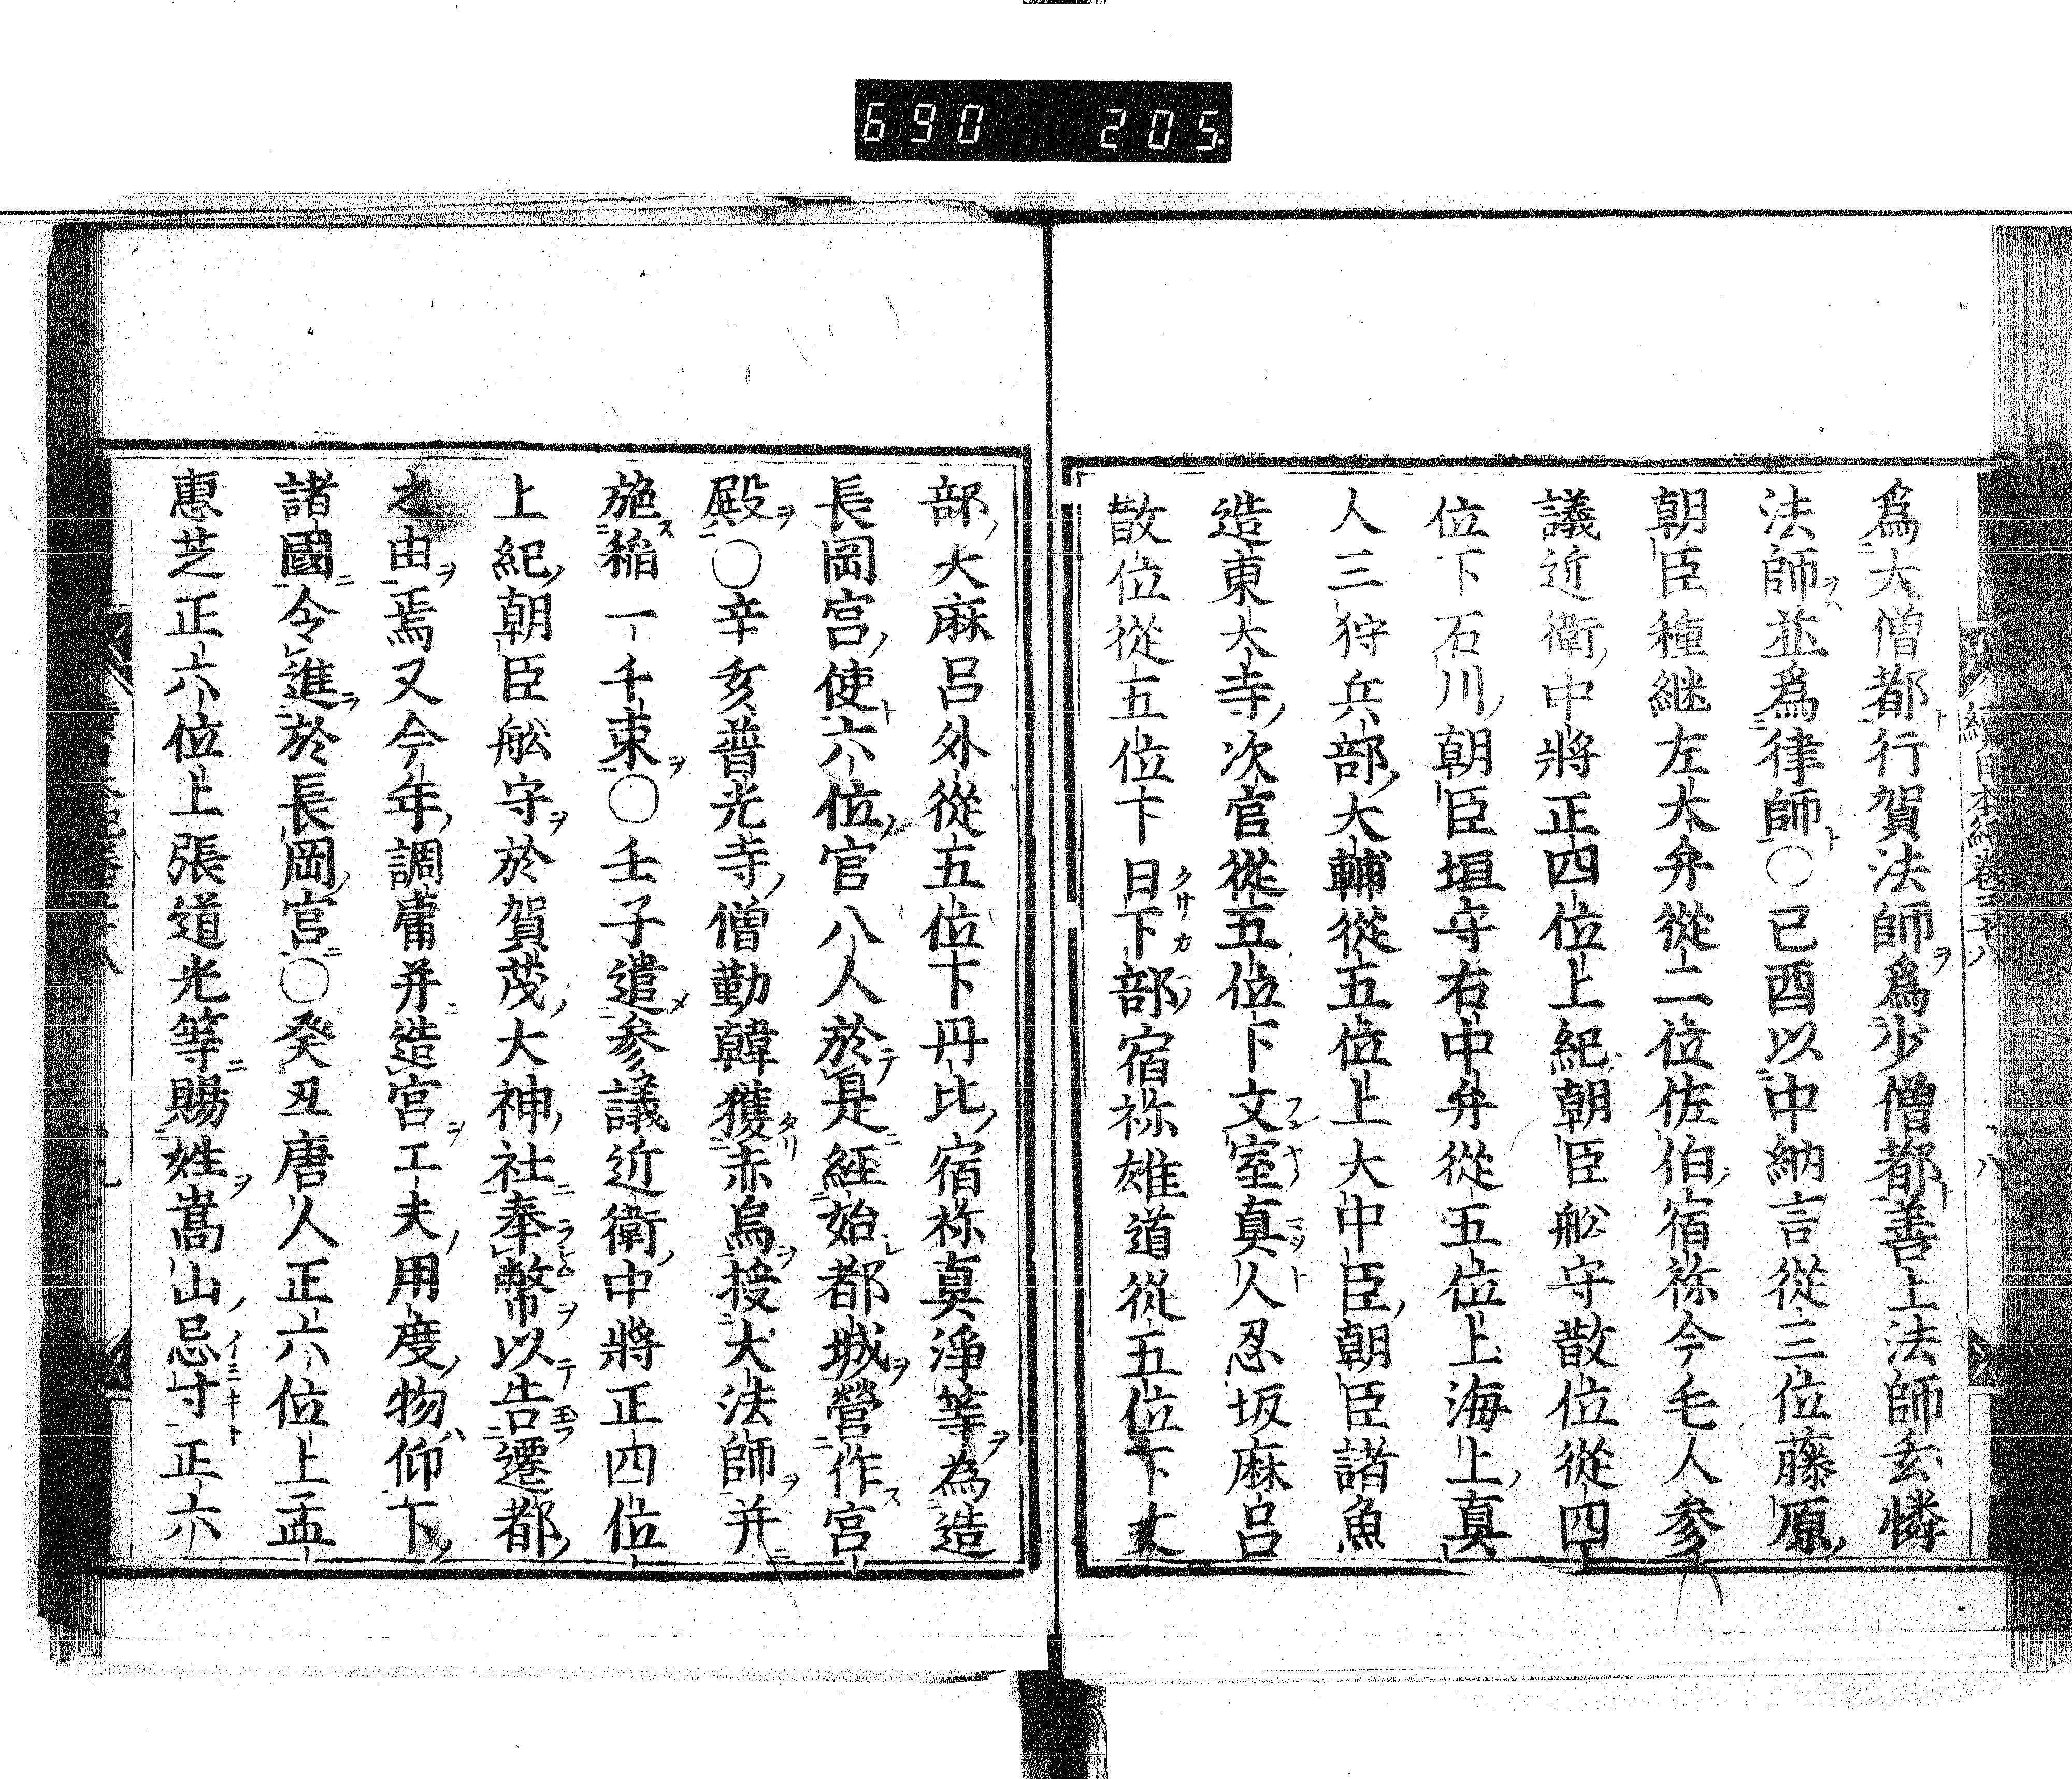 690 205
續日本紀卷三十八 八
爲大僧都行賀法師爲少僧都善上法師玄憐
法師並爲律師〇己酉以中納言從三位藤原
朝臣種継左大弁從二位佐伯宿祢今毛人参
議近衛中將正四位上紀朝臣舩守散位從四
位下石川朝臣垣守右中弁從五位上海上真
人三狩兵部大輔從五位上大中臣朝臣諸魚
造東大寺次官從五位下文室真人忍坂麻呂
散位從五位下日下部宿祢雄道從五位下丈
部大麻呂外從五位下丹比宿祢真淨等為造
長岡宮使六位官八人於是経始都城營作宮
殿〇辛亥普光寺僧勤韓獲赤烏授大法師并
施稲一千束〇壬子遣参議近衛中將正四位
上紀朝臣舩守於賀茂大神社奉幣以告遷都
之由焉又今年調庸并造宮工夫用度物仰下
諸國令進於長岡宮〇癸丑唐人正六位上孟
惠芝正六位上張道光等賜姓嵩山忌寸正六